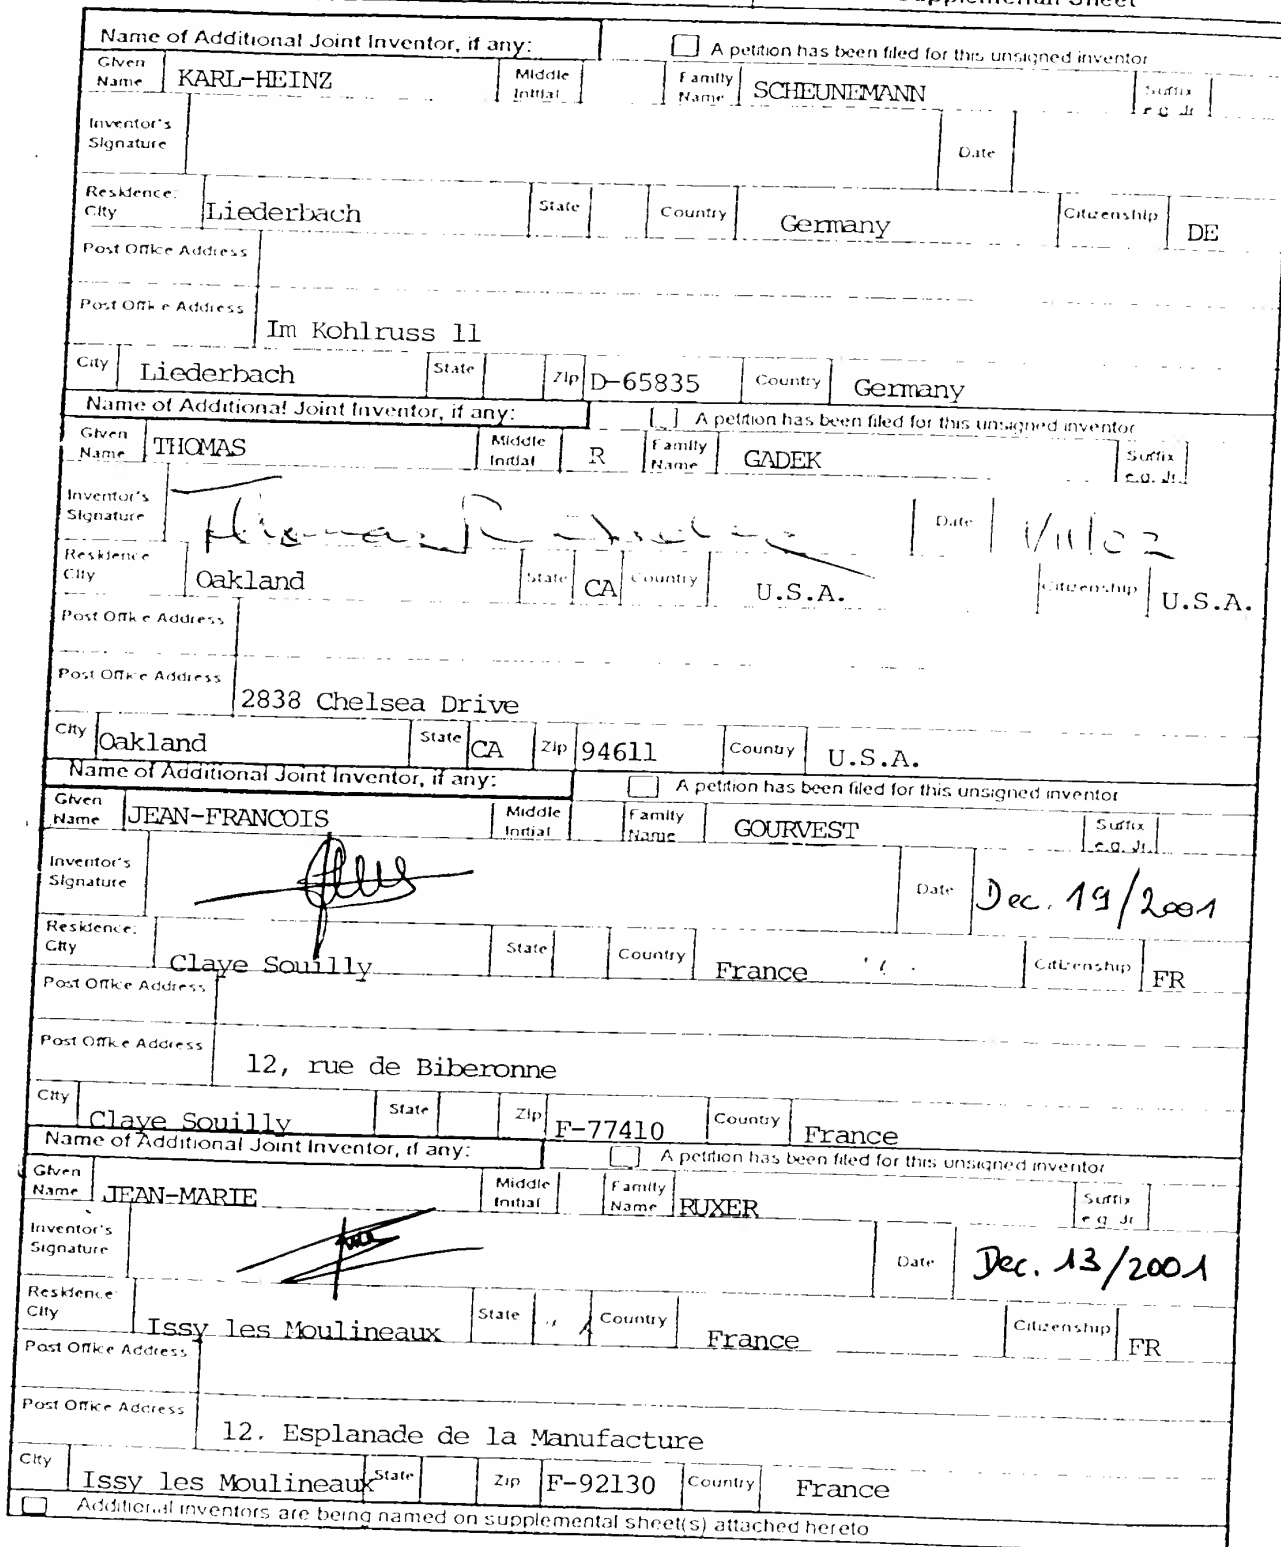 Supplemental Sheet
Name of Additional Joint Inventor, if any: A petition has been filed for this unsigned inventor
Given Name KARL-HEINZ Middle Initial Family Name SCHEUNEMANN Suffix e.g. Jr.
Inventor's Signature Date
Residence: City Liederbach State Country Germany Citizenship DE
Post Office Address
Post Office Address Im Kohlruss 11
City Liederbach State Zip D-65835 Country Germany
Name of Additional Joint Inventor, if any: A petition has been filed for this unsigned inventor
Given Name THOMAS Middle Initial R Family Name GADEK Suffix e.g. Jr.
Inventor's Signature Date 1/11/02
Residence City Oakland State CA Country U.S.A. Citizenship U.S.A.
Post Office Address
Post Office Address 2838 Chelsea Drive
City Oakland State CA Zip 94611 Country U.S.A.
Name of Additional Joint Inventor, if any: A petition has been filed for this unsigned inventor
Given Name JEAN-FRANCOIS Middle Initial Family Name GOURVEST Suffix e.g. Jr.
Inventor's Signature Date Dec. 19/2001
Residence: City Claye Souilly State Country France Citizenship FR
Post Office Address
Post Office Address 12, rue de Biberonne
City Claye Souilly State Zip F-77410 Country France
Name of Additional Joint Inventor, if any: A petition has been filed for this unsigned inventor
Given Name JEAN-MARIE Middle Initial Family Name RUXER Suffix e.g. Jr
Inventor's Signature Date Dec. 13/2001
Residence City Issy les Moulineaux State Country France Citizenship FR
Post Office Address
Post Office Address 12. Esplanade de la Manufacture
City Issy les Moulineaux State Zip F-92130 Country France
Additional inventors are being named on supplemental sheet(s) attached hereto